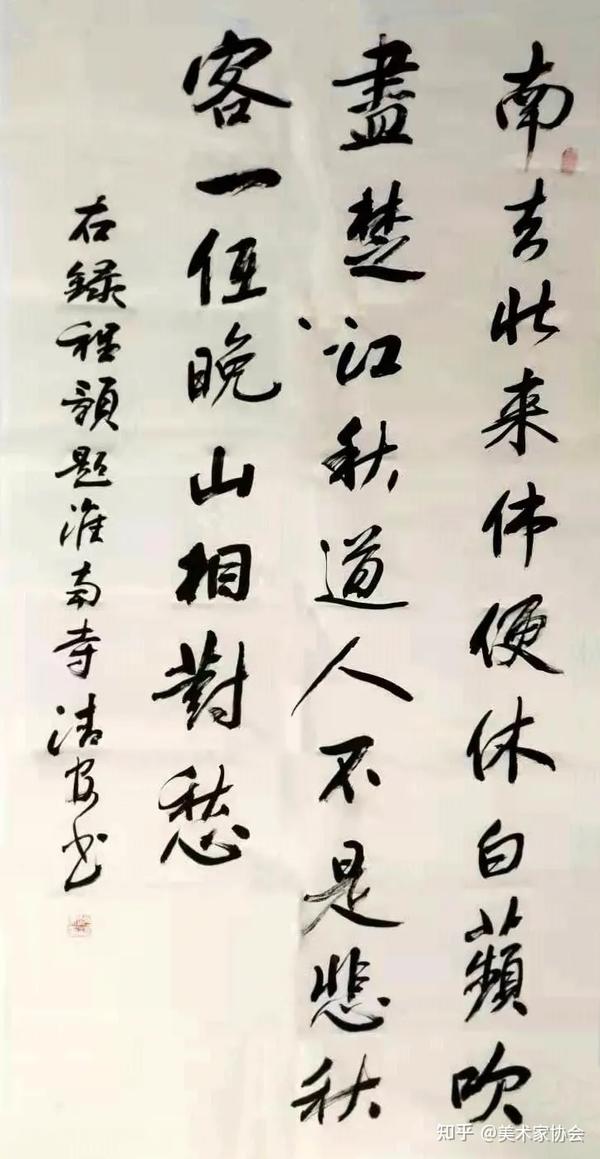 南去北来休便休白蘋吹
盡楚江秋道人不是悲秋
客一任晚山相對愁
右録程顥題淮南寺清书
知乎 @美术家协会